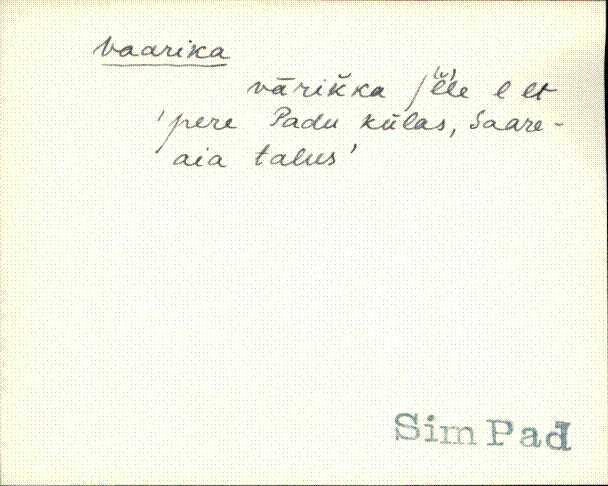 vaarika
vārik̆ka /ĕle l et
'pere Padu külas, Saare-
aia talus'
Sim Pad